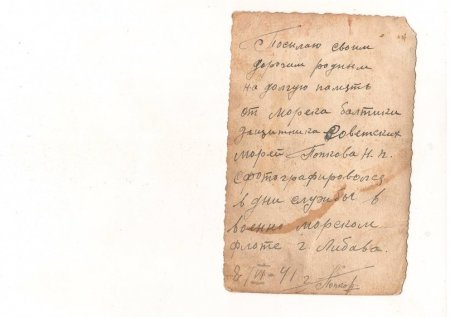 Посылаю своим
дорогим родным
на долгую память
от моряка балтики
защитника Советских
морей Попкова Н. П.
сфотографировался
в дни службы в
военно морском
флоте г. Либава.
8/VI-41 г Попков